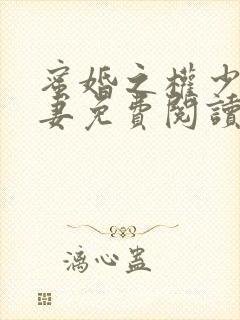 蜜婚之權少
妻免費閱讀
漓心蠱